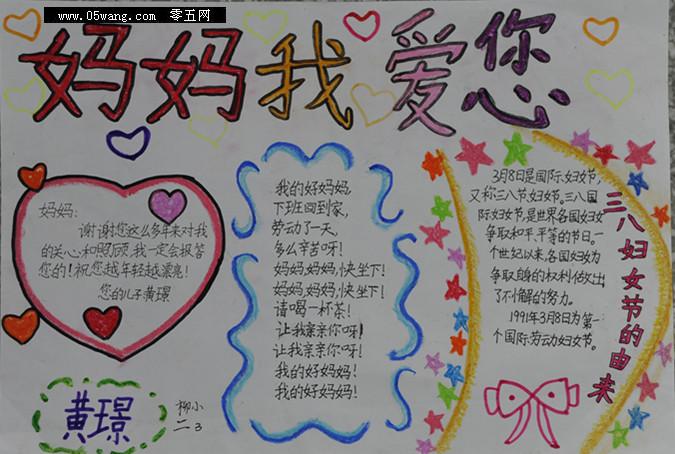 www.05wang.com 零五网
妈妈我爱您
妈妈:
谢谢您这么多年来对我
的关心和照顾,我一定会报答
您的!祝您越年轻越漂亮!
您的儿子黄璟
黄璟
柳小
二3
我的好妈妈,
下班回到家,
劳动了一天,
多么辛苦呀!
妈妈,妈妈,快坐下!
妈妈,妈妈,快坐下!
请喝一杯茶!
让我亲亲你呀!
让我亲亲你呀!
我的好妈妈!
我的好妈妈!
3月8日是国际妇女节,
又称三八节,妇女节。三八国
际妇女节,是世界各国妇女
争取和平、平等的节日。一
个世纪以来,各国妇女为
争取自身的权利做出
了不懈的努力。
1991年3月8日为第一
个国际劳动妇女节。
三八妇女节的由来